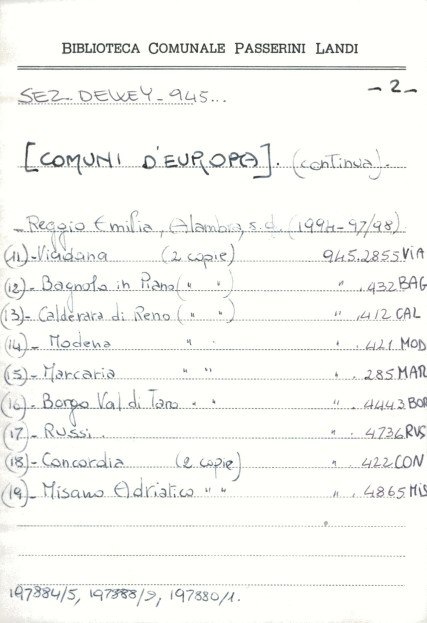 BIBLIOTECA COMUNALE PASSERINI LANDI
SEZ. DEWEY - 945...
- 2 -
[COMUNI D'EUROPA]. (continua).
- Reggio Emilia, Alambra, s.d. (1994-97/98).
(11)- Viadana (2 copie) 945.2855 VIA
(12)- Bagnolo in Piano (" ") " .432 BAG
(13)- Calderara di Reno (" ") " .412 CAL
(14)- Modena " " " .421 MOD
(15)- Marcaria " " " .285 MAR
(16)- Borgo Val di Taro " " " .4443 BOR
(17)- Russi. " .4736 RUS
(18)- Concordia (2 copie) " .422 CON
(19)- Misano Adriatico " " " .4865 MIS
197884/5, 197888/9, 197880/1.